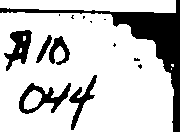 A10
044